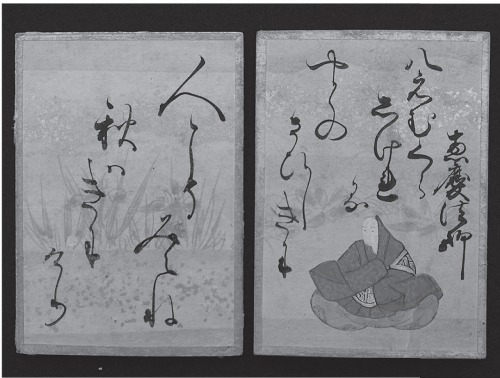 恵慶法師
八重むくら
しけれ
る
やとの
さひしきに
人こそみえね
秋ハきに
けり